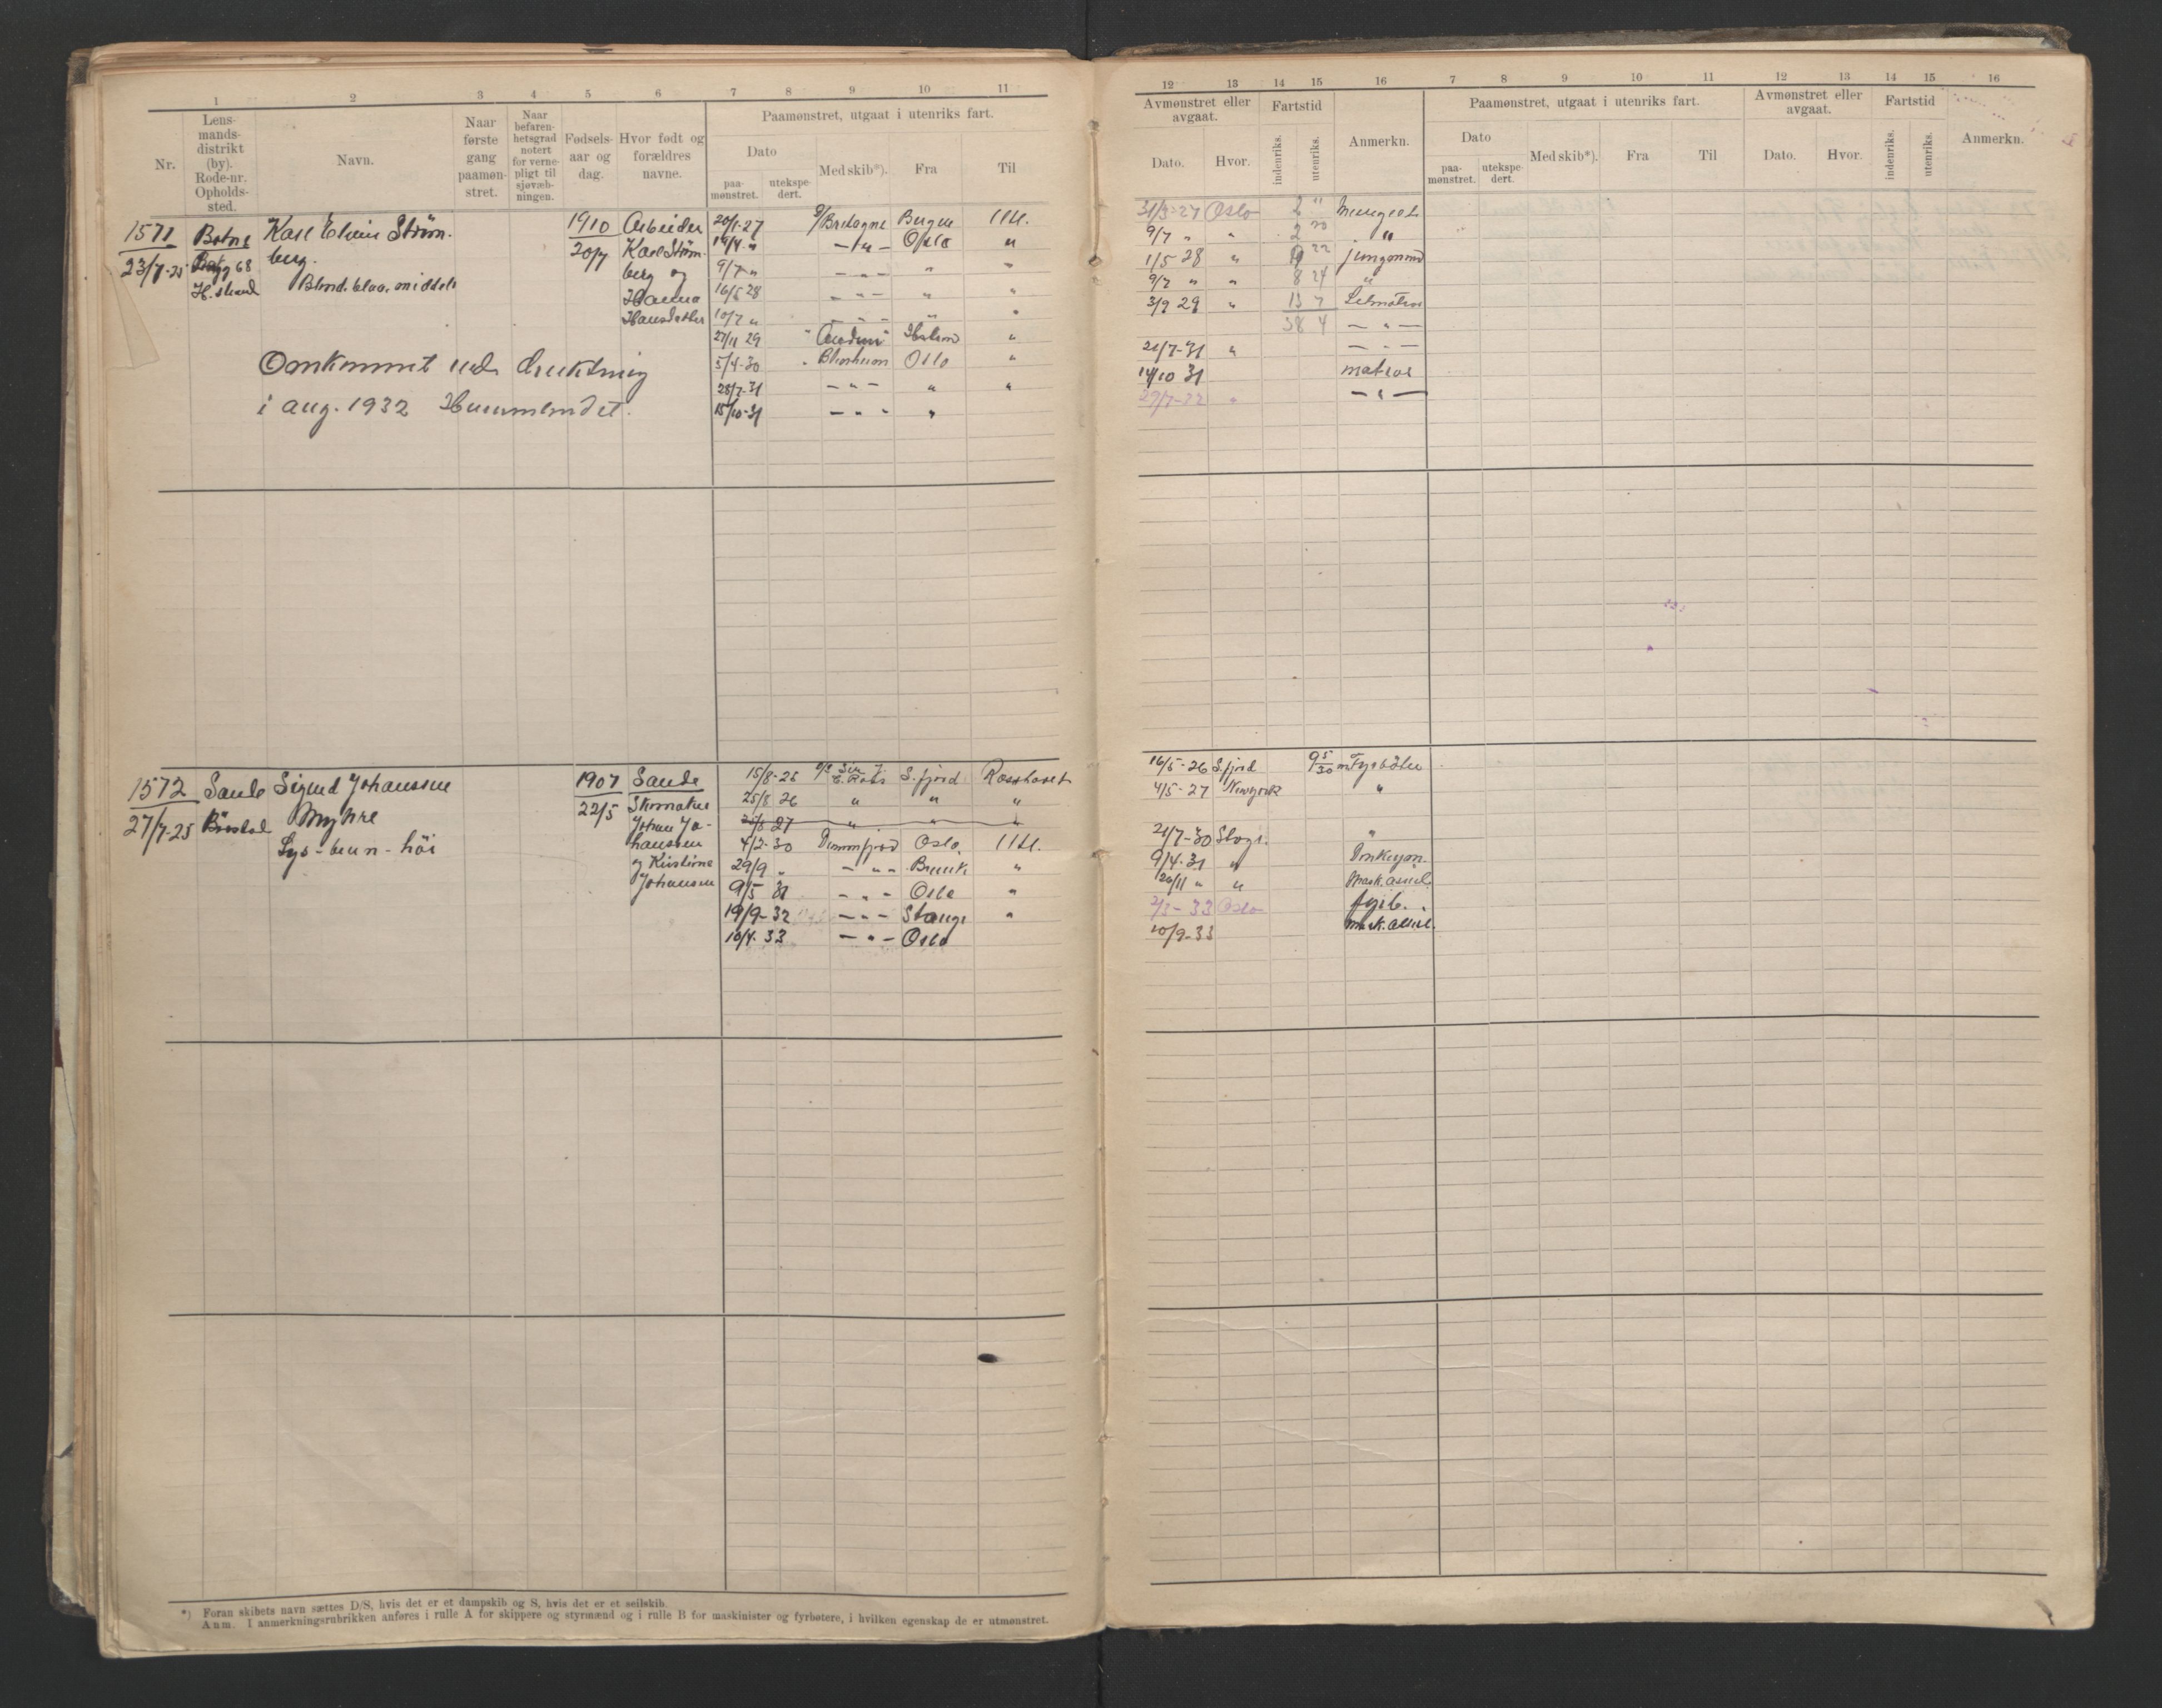 1 2 3 4 5 6 7 8 9 10 11
Nr. Lens-mands-distrikt (by). Rode-nr. Opholds-sted. Navn. Naar første gang paamøn-stret. Naar befaren-hetsgrad notert for verne-pligt til sjøvæb-ningen. Fødsels-aar og dag. Hvor født og forældres navne. Paamønstret, utgaat i utenriks fart.
Dato Med skib*). Fra Til
paa-mønstret. utekspe-dert.
1571 Botne Karl Elvin Strøm- 1910 Arbeider 20/1-27 Bretagne Bergen Utl.
23/7-25 berg. 20/7 Karl Strøm- 19/4 " — " — Oslo "
68 berg og 9/7 " — " — " "
H.strand Blond. blaa. middels Hanna 16/5 28 — " — " "
Hansdatter 10/7 " — " — " "
27/11 29 " "
Omkommet ved drukning 5/4-30 " Oslo "
28/7-31 — " — " "
i aug. 1932 15/10-31 — " — "
1572 Sande Sigurd Johanssen 1907 Sande 15/8-25 S.fjord Rosshavet
27/7-25 Myhre 22/5 Skomaker 25/8 26 " " "
Lys - brun - höi Johan Jo- 25/8 27 " " "
hanssen 4/2-30 Oslo. Utl.
og Kristine 29/9 " — " — "
Johansen 9/5 31 — " — Oslo "
19/9-32 — " — "
10/4-33 — " — Oslo
*) Foran skibets navn sættes D/S, hvis det er et dampskib og S, hvis det er et seilskib.
Anm. I anmerkningsrubrikken anføres i rulle A for skippere og styrmænd og i rulle B for maskinister og fyrbøtere, i hvilken egenskap de er utmønstret.
12 13 14 15 16 7 8 9 10 11 12 13 14 15 16
Avmønstret eller avgaat. Fartstid Anmerkn. Paamønstret, utgaat i utenriks fart. Avmønstret eller avgaat. Fartstid Anmerkn.
Dato. Hvor. indenriks. utenriks. Dato Med skib*). Fra Til Dato. Hvor. indenriks. utenriks.
paa-mønstret. utekspe-dert.
31/3-27 Oslo 2 11
9/7 " " 2 20 "
1/5 28 " 9 22 jungmand
9/7 " " 8 24 "
3/9 29 " 13 7 Letmatros
38 4 — " —
21/7-31 " — " —
14/10 31 matros
" — " —
16/5-26 S.fjord Fyrbøter
4/5-27 Newyork "
21/7-30 "
9/4-31 " Donkeym.
20/11 " " Mask.assist.
2/3-33 Oslo fyrb.
10/9-33 mask.assist.